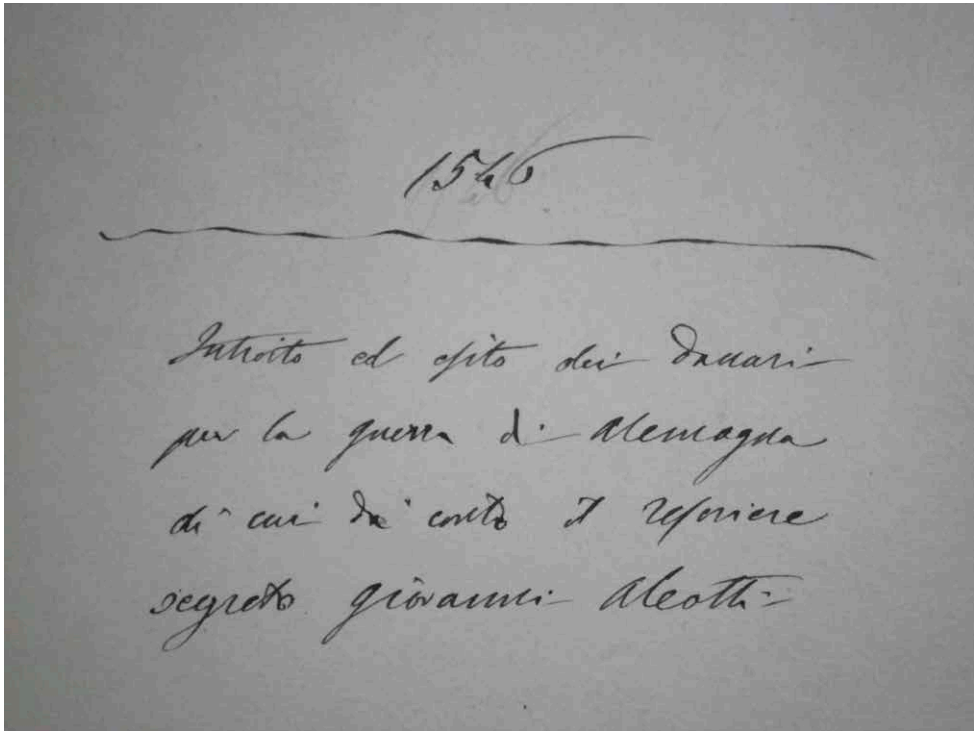 1546
Introito ed esito dei danari
per la guerra di Alemagna
di cui dà conto il tesoriere
segreto Giovanni Aleotti